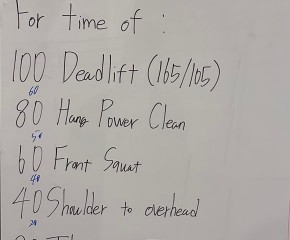 For time of :
100 Deadlift (165/105)
60
80 Hang Power Clean
50
60 Front Squat
40
40 Shoulder to overhead
20